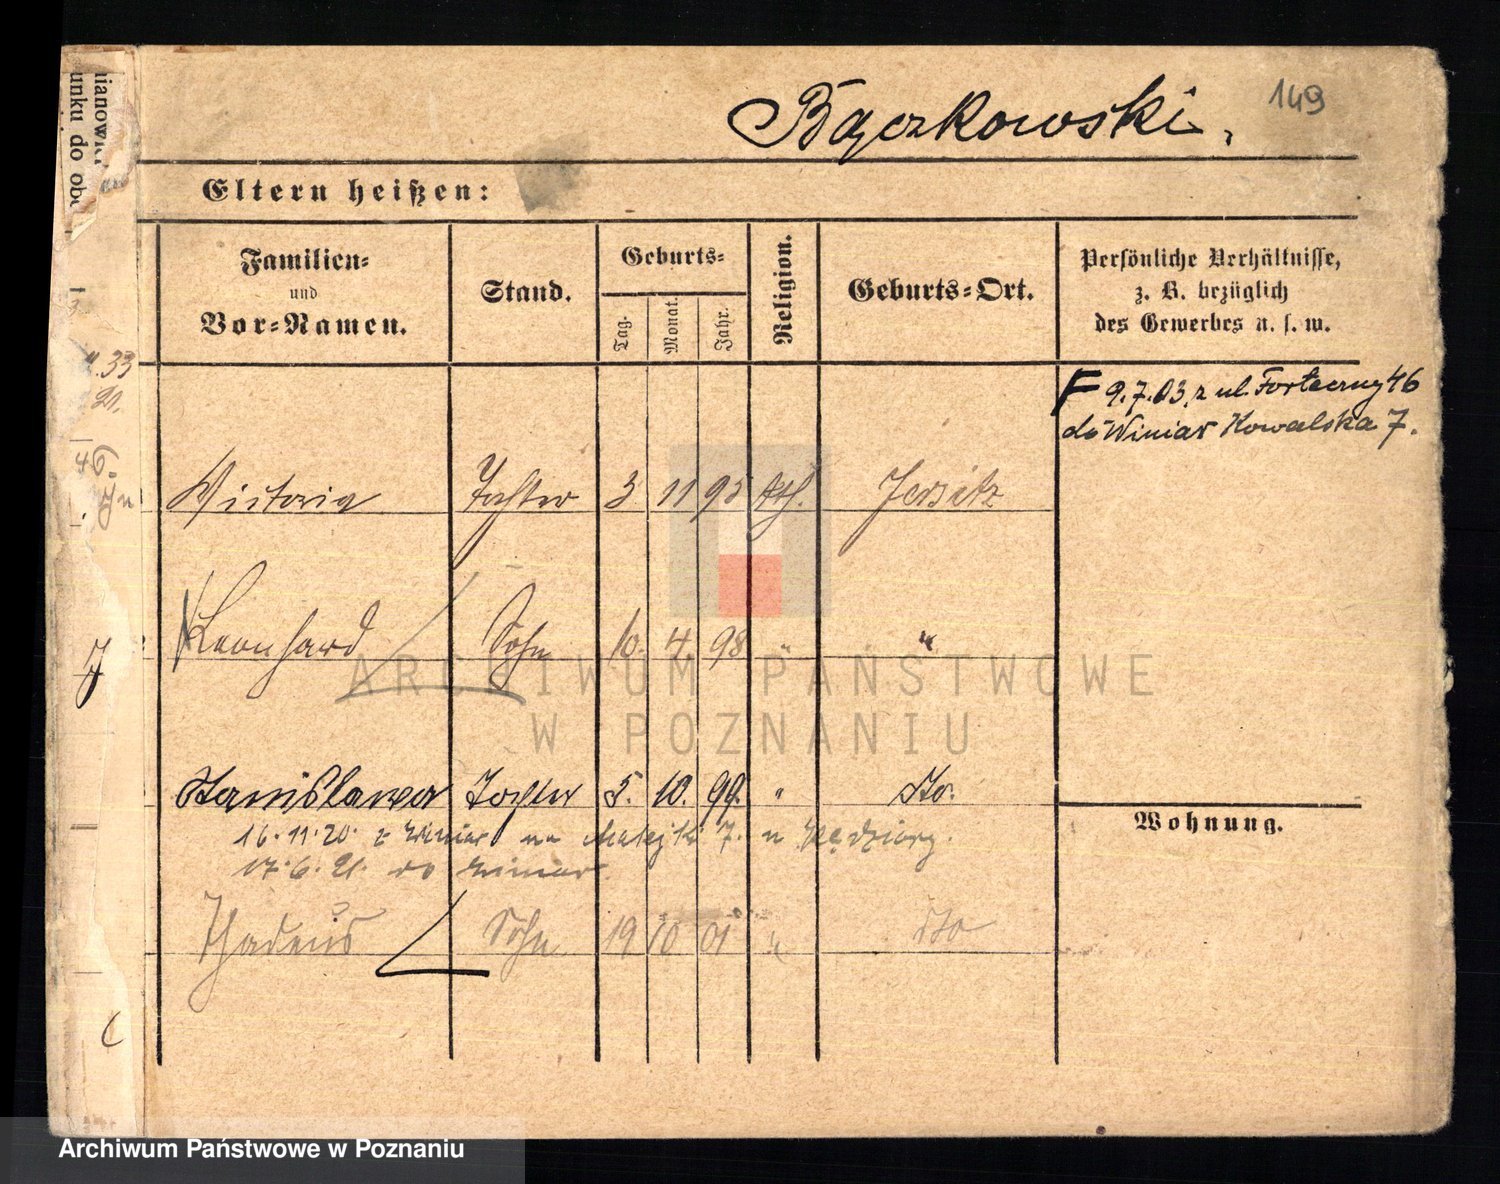 Bączkowski.
149
Eltern heißen:
Familien-
und
Vor-Namen.
Stand.
Geburts-
Tag.
Monat.
Jahr.
Religion.
Geburts-Ort.
Persönliche Verhältnisse,
z. B. bezüglich
des Gewerbes u. s. w.
F 9.7.03. z ul. Forteczny 46
do Winiar Kowalska 7.
Wictoria Tochter 3 11 95 kth. Jersitz
Leonhard Sohn 10. 4. 98 " "
Stanislawa Tochter 5. 10. 99. " dto.
16.11.20. z Winiar na Matejki 7. u
17.6.21. do Winiar.
Thadeus Sohn 19 10 01 " dto
Wohnung.
unku do
33
21.
46.
ARCHIWUM PAŃSTWOWE
W POZNANIU
Archiwum Państwowe w Poznaniu